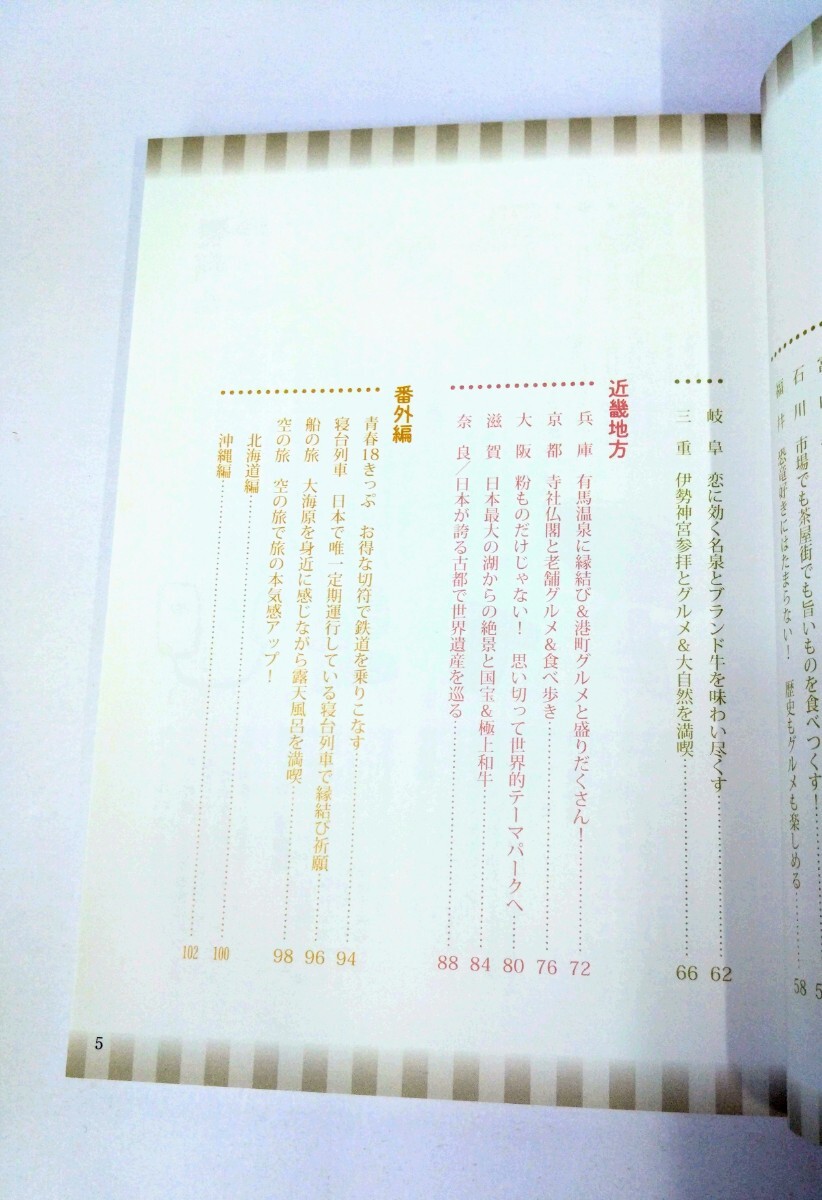 石川 市場でも茶屋街でも旨いものを食べつくす!
福井 恐竜好きにはたまらない! 歴史もグルメも楽しめる……58
岐阜 恋に効く名泉とブランド牛を味わい尽くす……62
三重 伊勢神宮参拝とグルメ&大自然を満喫……66
近畿地方
兵庫 有馬温泉に縁結び&港町グルメと盛りだくさん!……72
京都 寺社仏閣と老舗グルメ&食べ歩き……76
大阪 粉ものだけじゃない! 思い切って世界的テーマパークへ……80
滋賀 日本最大の湖からの絶景と国宝&極上和牛……84
奈良/日本が誇る古都で世界遺産を巡る……88
番外編
青春18きっぷ お得な切符で鉄道を乗りこなす……94
寝台列車 日本で唯一定期運行している寝台列車で縁結び祈願……96
船の旅 大海原を身近に感じながら露天風呂を満喫……98
空の旅 空の旅で旅の本気感アップ!
北海道編……100
沖縄編……102
5